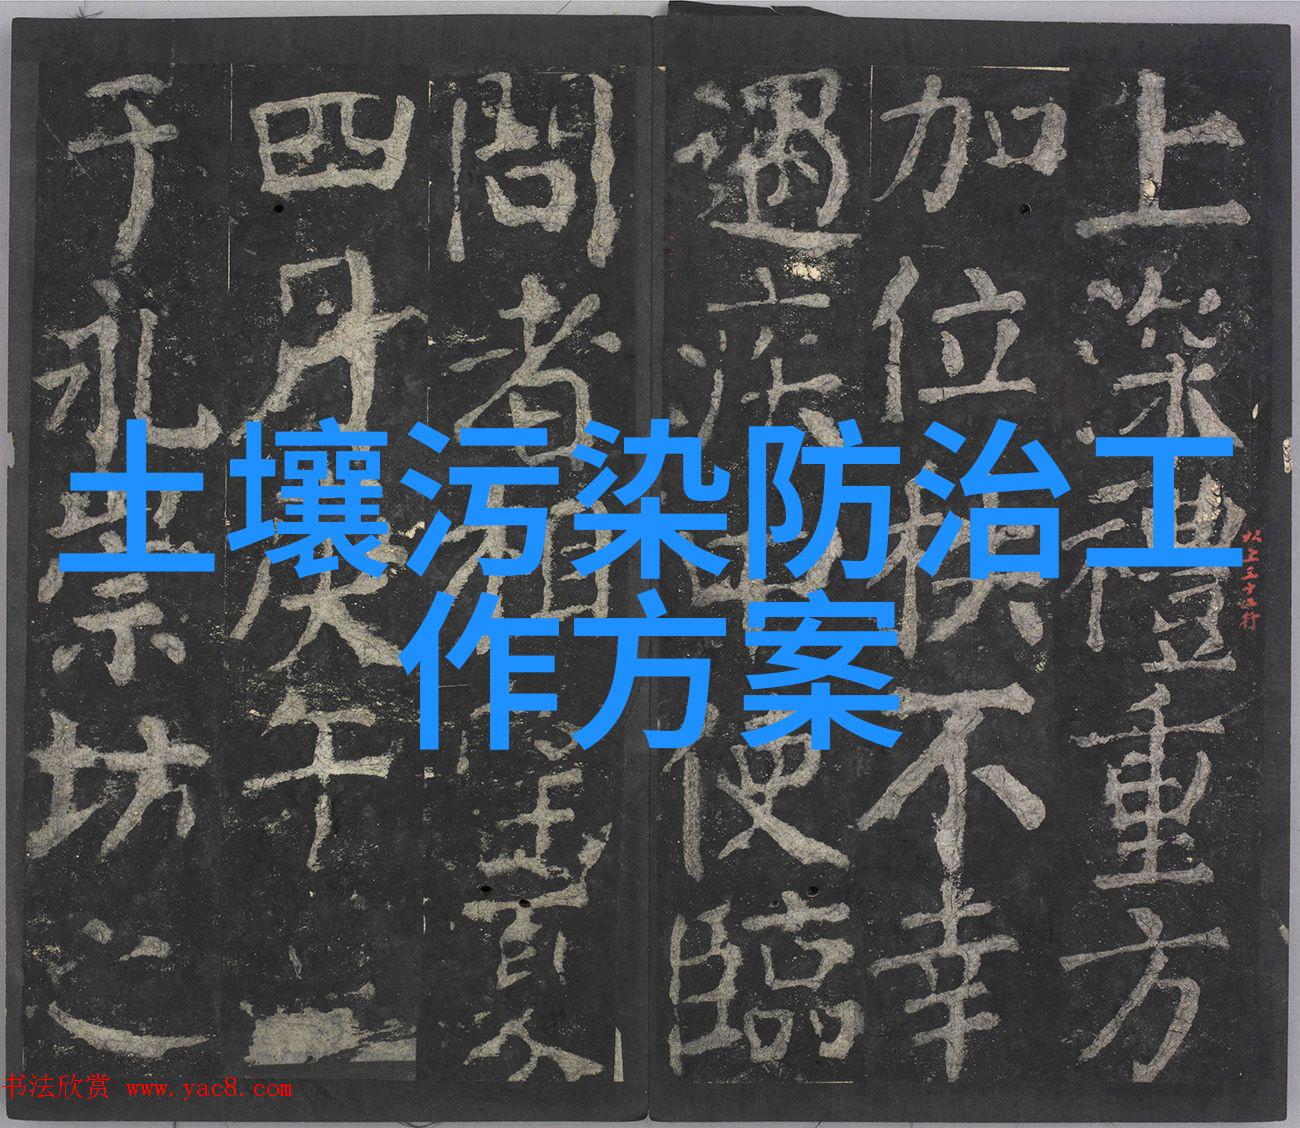 土壤污染防治工
作方案
上禮重方
加位不幸
遇疾使臨
問者相夏
四月庚午
于永崇坊之
书法欣赏 www.yac8.com